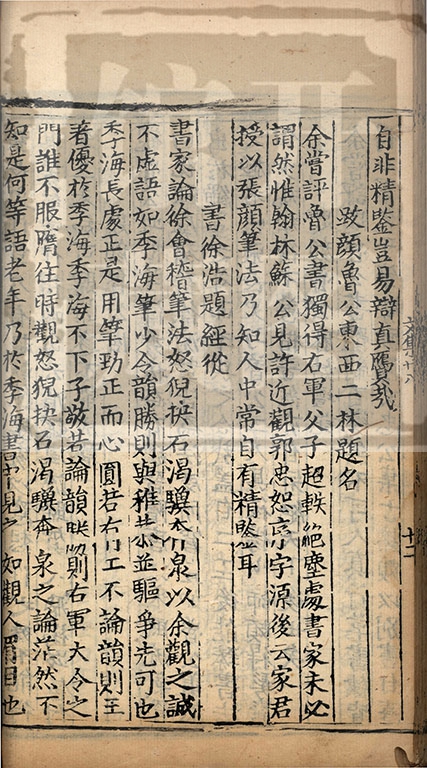 自非精鑒豈易辯真贋哉
跋顔魯公東西二林題名
余嘗評魯公書獨得右軍父子超軼絶塵處書家未必
謂然惟翰林蘇公見許近觀郭忠恕序字源後云家君
授以張顔筆法乃知人中常自有精鑒耳
書徐浩題經後
書家論徐會稽筆法怒猊抉石渴驥奔泉以余觀之誠
不虚語如季海筆少令韻勝則與稚恭並驅爭先可也
季海長處正是用筆勁正而心圓若工不論韻則王
著優於季海季海不下子敬若論韻勝則右軍大令之
門誰不服膺往時觀怒猊抉石渴驥奔泉之論茫然不
知是何等語老年乃於季海書中見之如觀人眉目也
十二